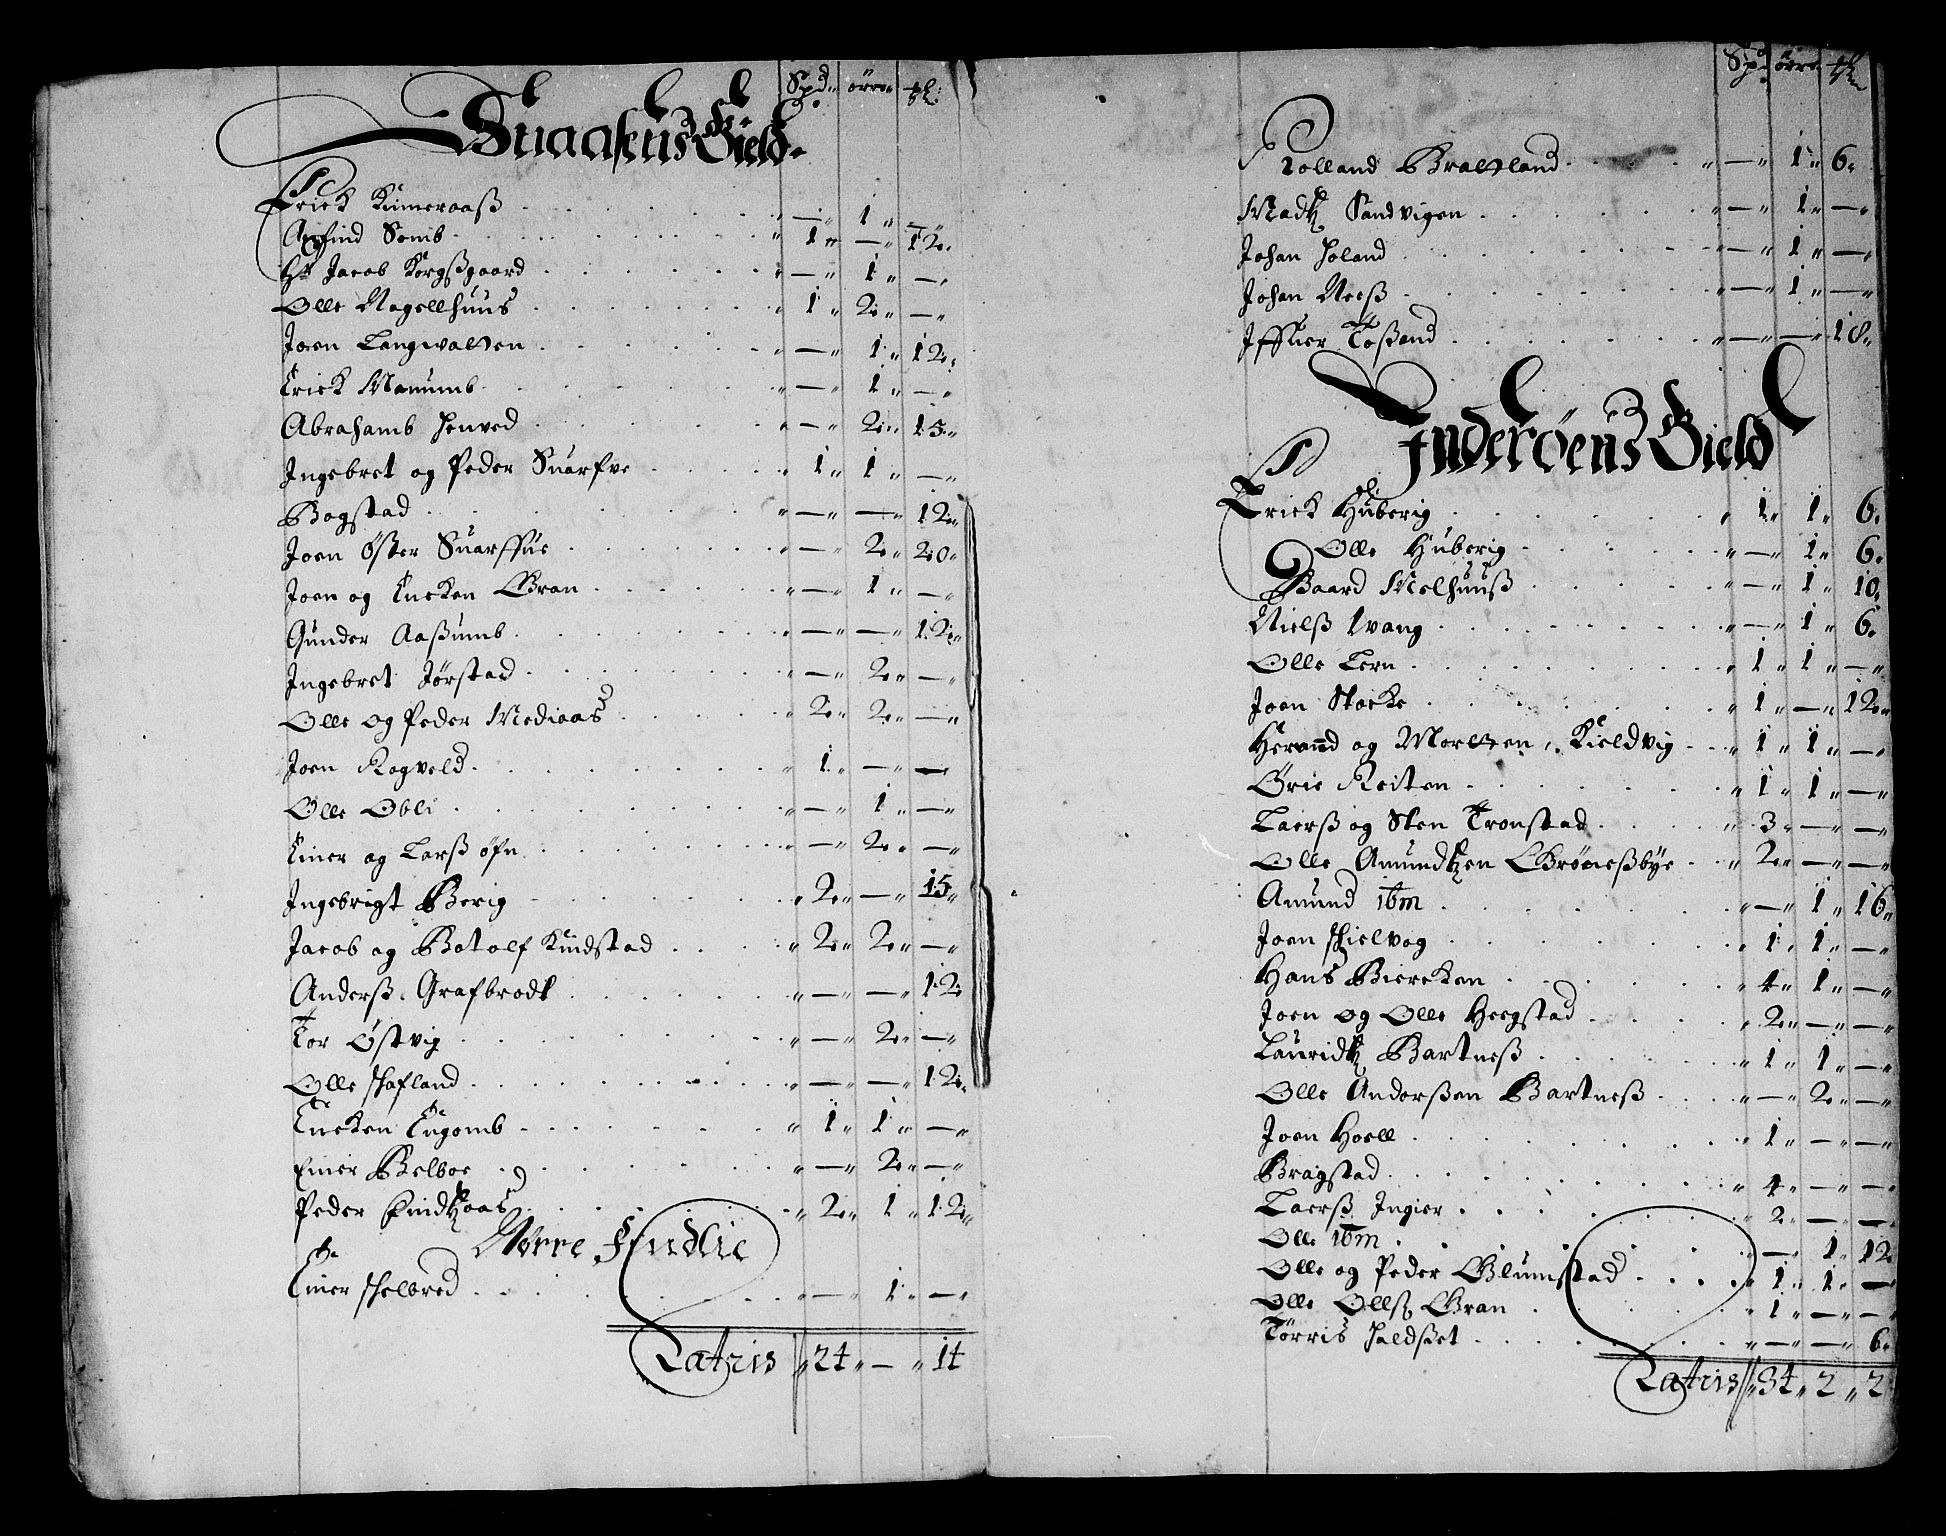 Spd. örre. ℔.
Snaasens Gield.
Erick Kiimeraaß . „ — „ 1 „ — „
Arfind Semb . „ 1 „ — „ 12.
Hr Jacob Korgßgaard . „ — „ 1 „ — „
Olle Nagellhuus . „ 1 „ 2 „ — „
Joen Langwalten . „ — „ 1 „ 12.
Erick Manumb . „ — „ 1 „ — „
Abrahamb Henved . „ — „ 2 „ 15 „
Ingebret og Peder Suarfve . „ 1 „ 1 „ — „
Bogstad . „ — „ — „ 12 „
Joen Øster Suarffue . „ — „ 2 „ 20.
Joen og Encken Gran . „ — „ 1 „ — „
Gunder Aaßumb . „ — „ — „ 12 „
Ingebret Jørstad . „ — „ 2 „ — „
Olle og Peder Mediaas . „ 2 „ 2 „ — „
Joen Ragveld . „ 1 „ — „ —
Olle Obli . „ — „ 1 „ — „
Einer og Larß øfn . „ — „ 2 „ — „
Ingebrigt Berig . „ 2 „ — „ 15 „
Jacob og Botolf Kindstad . „ 2 „ 2 „ — „
Anderß Grafbrodt . „ — „ — „ 12
Tor Østvig . „ — „ 2 „ — „
Olle Schafland . „ — „ — „ 12.
Encken Engomb . „ 1 „ 1 „ — „
Einer Belboe . „ — „ 2 „ — „
Peder Findtzaas . „ 2 „ 1 „ 12 „
Nørre
Einer Schelbred . „ — „ 1 „ — „
Latris „ 24 „ — „ 14
Spd. örre ℔
Rolland Braltland . „ — „ 1 „ 6.
Madtz Sandvigen . „ — „ 1 „ — „
Johan Holand . „ — „ 1 „ — „
Johan Neeß . „ — „ 1 „ — „
Iffuer Toßand . „ — „ — „ 18.
Inderöens Gield
Erick Huberig . „ 1 „ 1 „ 6.
Olle Huberig . „ — „ 1 „ 6.
Baard Melhuuß . „ — „ 1 „ 10.
Nielß Wang . „ — „ 1 „ 6.
Olle Lern . „ 1 „ 1 „ — „
Joen Stocke . „ 1 „ — „ 12 „
Herannd og Morten Kieldvig . „ 1 „ 1 „ —
Brie Reiten . „ 1 „ 1 „ — „
Laerß og Sten Tronstad . „ 3 „ — „ — „
Olle Amundtzen Grøneßbye . „ 2 „ — „ — „
Amund ibm . „ — „ 1 „ 16 „
Joen Schielvog . „ 1 „ 1 „ — „
Hans Biercken . „ 4 „ 1 „ — „
Joen og Olle Heegstad . „ 2 „ — „ — „
Lauridtz Bartneß . „ 1 „ 1 „ — „
Olle Anderßen Bartneß . „ — „ 2 „ — „
Joen Hoell . „ 1 „ — „ — „
Bragstad . „ 4 „ — „ — „
Laerß Ingier . „ 2 „ — „ — „
Olle ibm . „ — „ 1 „ 12
Olle og Peder Glumstad . „ 1 „ 1 „ —
Olle Ollß Gran . „ 1 „ — „ — „
Tørris Haldßet . „ — „ — „ 6.
Latris „ 34 „ 2 „ 2